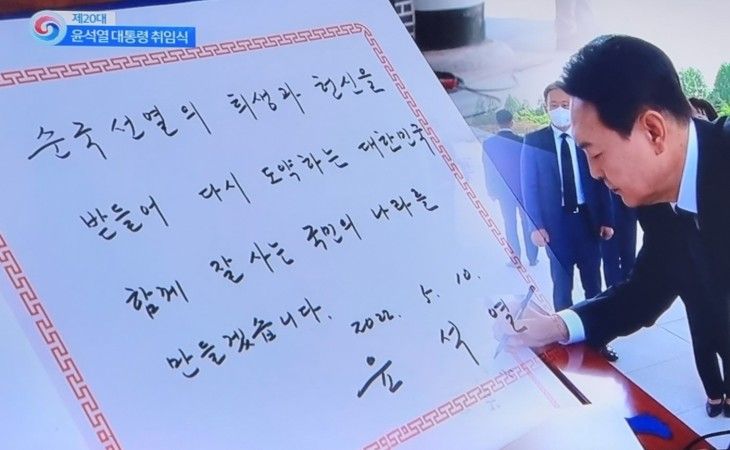 제20대
윤석열 대통령 취임식
순국선열의 희생과 헌신을
받들어 다시 도약하는 대한민국
함께 잘 사는 국민의 나라를
만들겠습니다.
2022. 5. 10.
윤 석 열